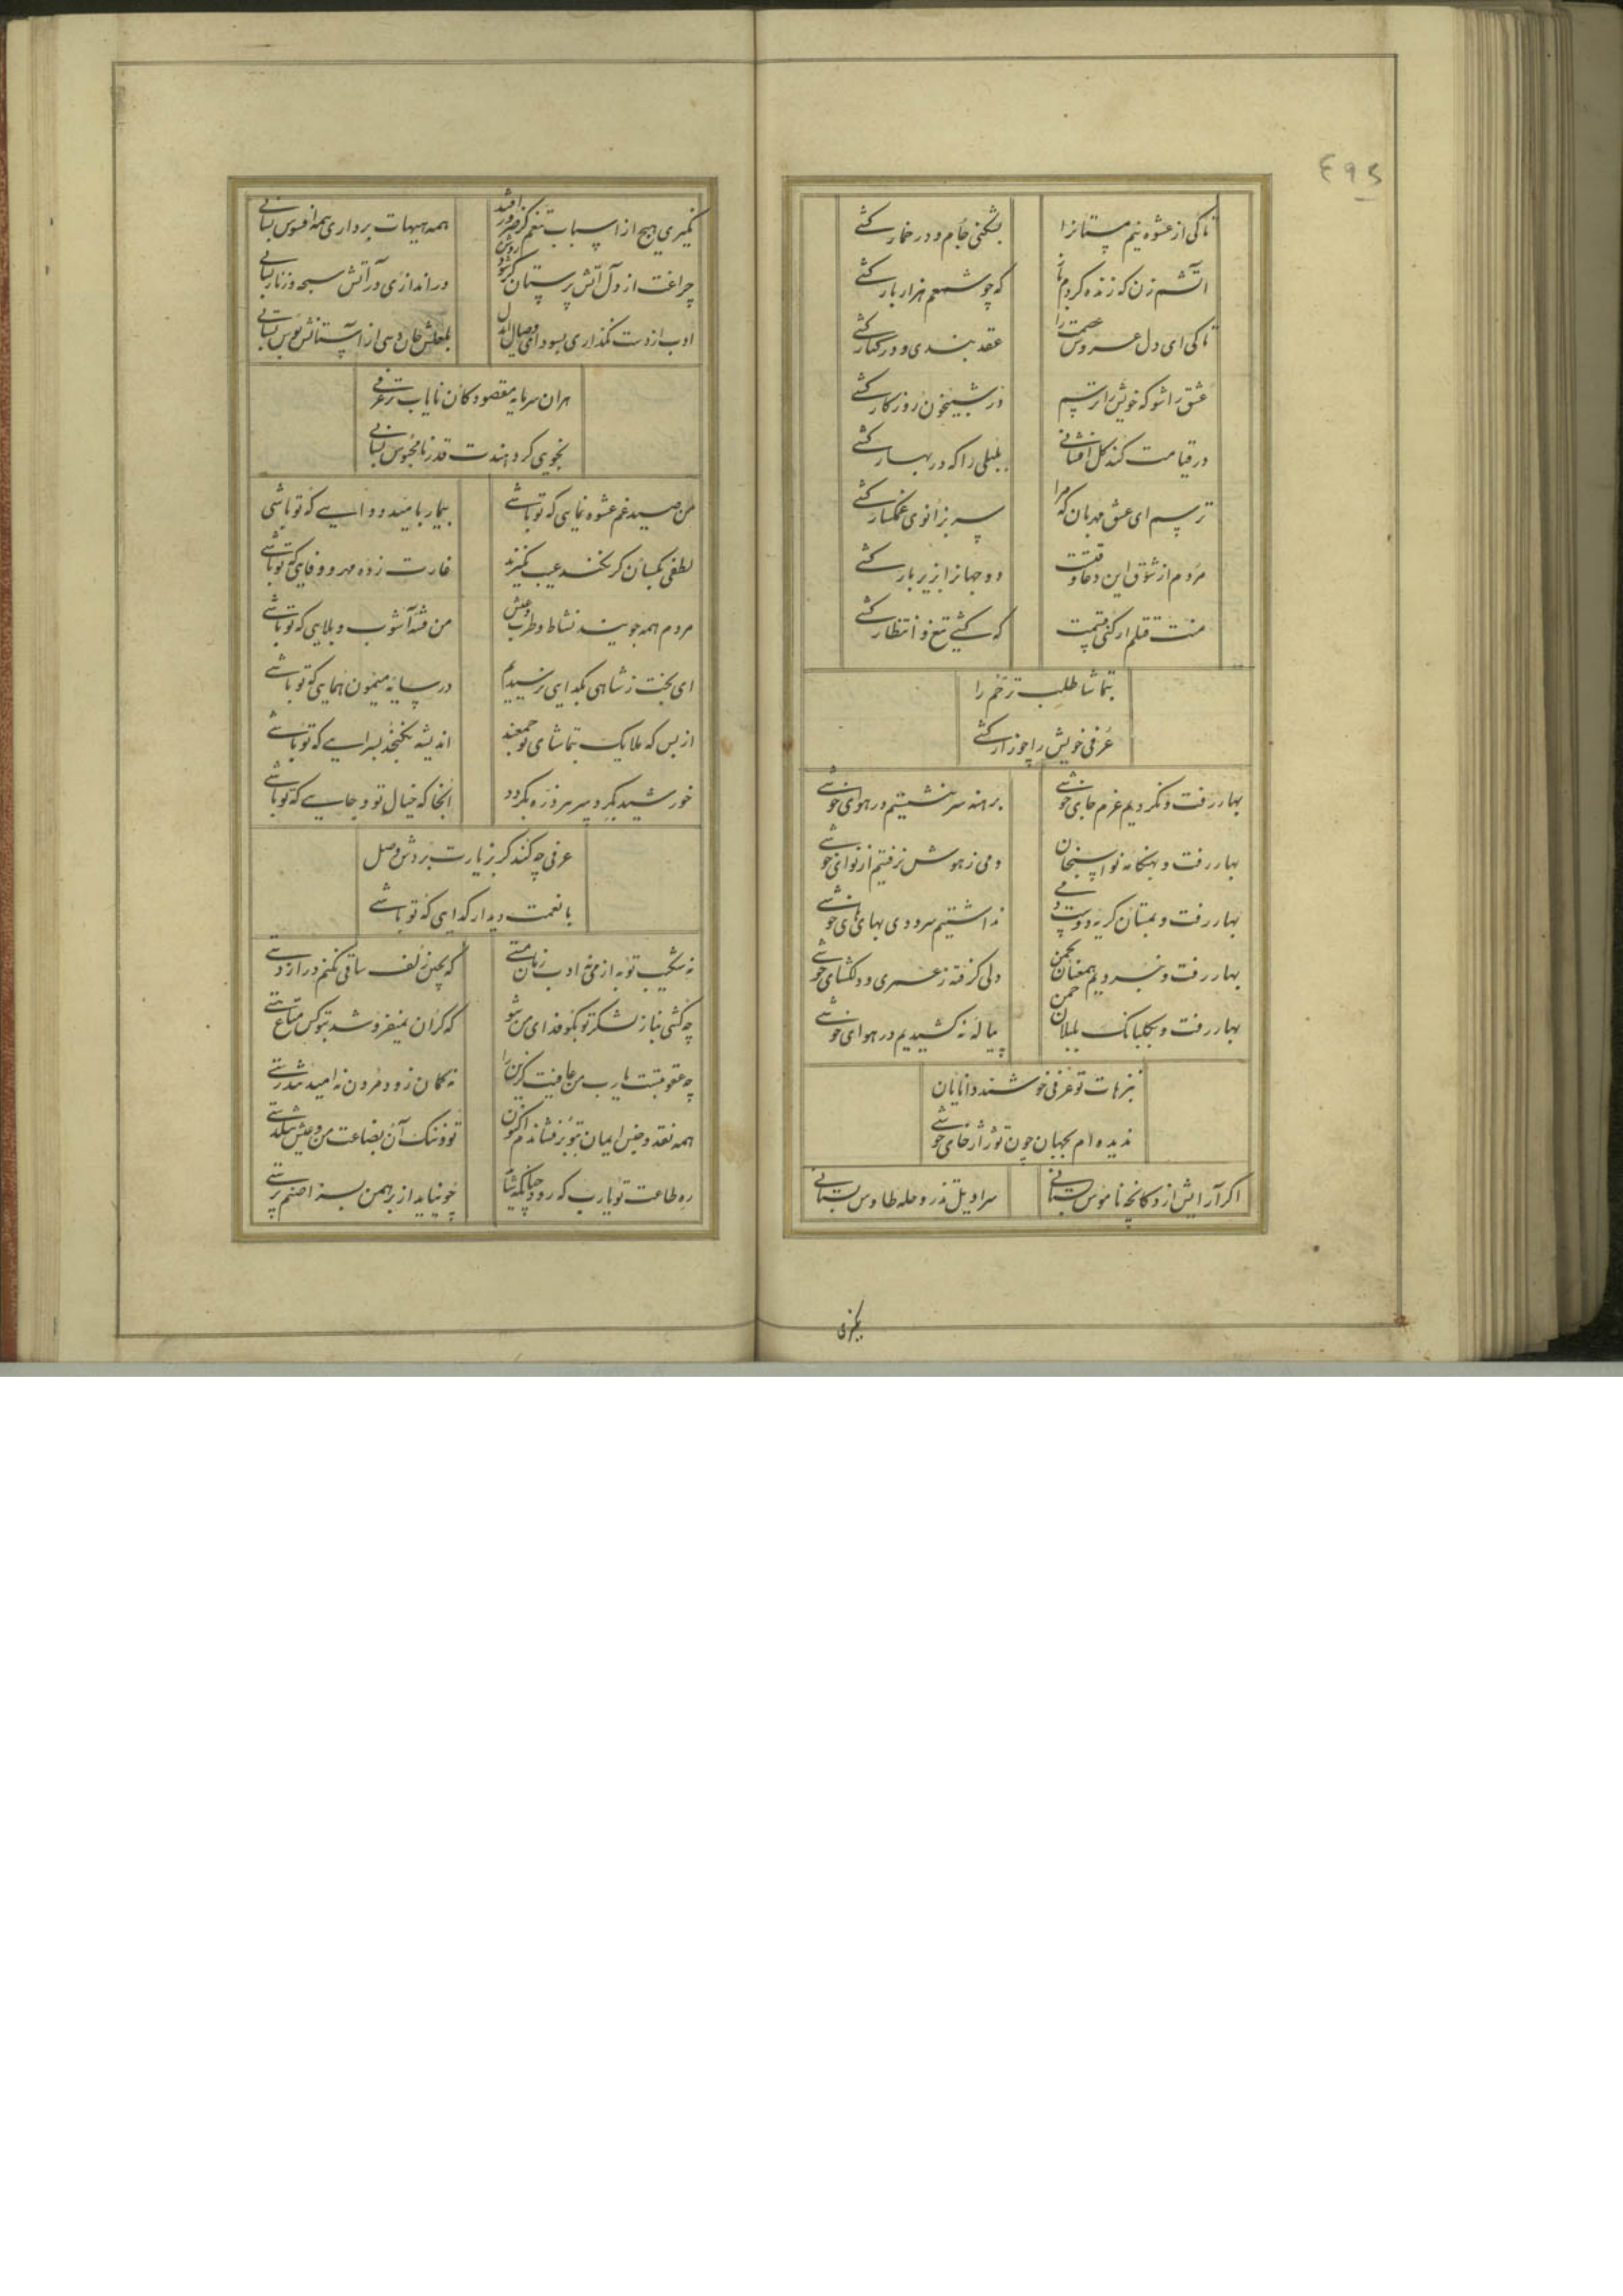 ۴۹۵
تا کی از عشوه نیم مستانرا بشکنی جام و در خمار کشی
آتشم زن که زنده کردم باز که چو شمعم هزار بار کشی
تا کی ای دل عروس عصمت را عقد بندی و در کنار کشی
عشق را شو که خویش را ترسم در شبیخون روزکار کشی
در قیامت کند کل افشانی بلبلی را که در بهار کشی
ترسم ای عشق مهربان که مرا سر بزانوی غمکسار کشی
مردم از شوق این دعا وقتست دو جهانرا بزیر بار کشی
منت قتلم ار کنی قسمت که کشی تیغ و انتظار کشی
بتماشا طلب ترحم را
عرفی خویش را چو زار کشی
بهار رفت و نکردیم عزم جای خوشی برهنه سر ننشستیم در هوای خوشی
بهار رفت و بهنکامه نواسنجان دمی ز هوش نرفتیم از نوای خوشی
بهار رفت و بمستان کریه دوست دمی نداشتیم سرودی بهای های خوشی
بهار رفت و نبردیم همعنان چمن دلی کرفته ز عسری و دلکشای خوشی
بهار رفت و بکلبانک بلبلان چمن پیاله نه کشیدیم در هوای خوشی
بترهات تو عرفی خوشند دانایان
ندیده ام بجهان چون تو ژاژخای خوشی
اکر آرایش از دکانچه ناموس بستانی سراویل تذرو و حله طاوس بستانی
نکیری
نکیری هیچ از اسباب تنعم کر ضرور افتد همه هیهات برداری همه افسوس بستانی
چراغت از دل آتش پرستان کر شود روشن در اندازی در آتش سبحه و زنار بستانی
ادب از دست نکذاری بسودای وصال ای دل بلعلش جان دهی از آستانش بوس بستانی
هر آن سرمایه مقصود کان نایاب تر عرفی
بجویی کر دهندت قدر نامحبوس بستانی
من صید غم عشوه نمایی که تو باشی بیمار بامید دوایی که تو باشی
لطفی بکسان کر نکند عیب نکیرند غارت زده مهر و وفایی که تو باشی
مردم همه جویند نشاط و طرب و عیش من فتنه آشوب و بلایی که تو باشی
ای بخت ز شاهی بکدایی نرسیدیم در سایه میمون همایی که تو باشی
از بس که ملایک بتماشای تو جمعند اندیشه نکنجد بسرایی که تو باشی
خورشید بکردِ سر هر ذره بکردد آنجا که خیال تو و جایی که تو باشی
عرفی چه کند کر بزیارت بردش وصل
با نعمت دیدار کدایی که تو باشی
نه شکیب توبه از می نه ادب زمان مستی که بچین زلف ساقی نکنم دراز دستی
چه کشی بناز لشکر تو بکو فدای من شو که کران نمیفروشد بتو کس متاع هستی
چه عقوبتست یارب من عافیت کزین را نه کمان زود مردن نه امید تندرستی
همه نقد و جنس ایمان بتو بر فشاندم اکنون تو و ننک آن بضاعت من و عیش تنکدستی
ره طاعت تو یارب که رود چو نیاید از برهمن بسزا صنم پرستی